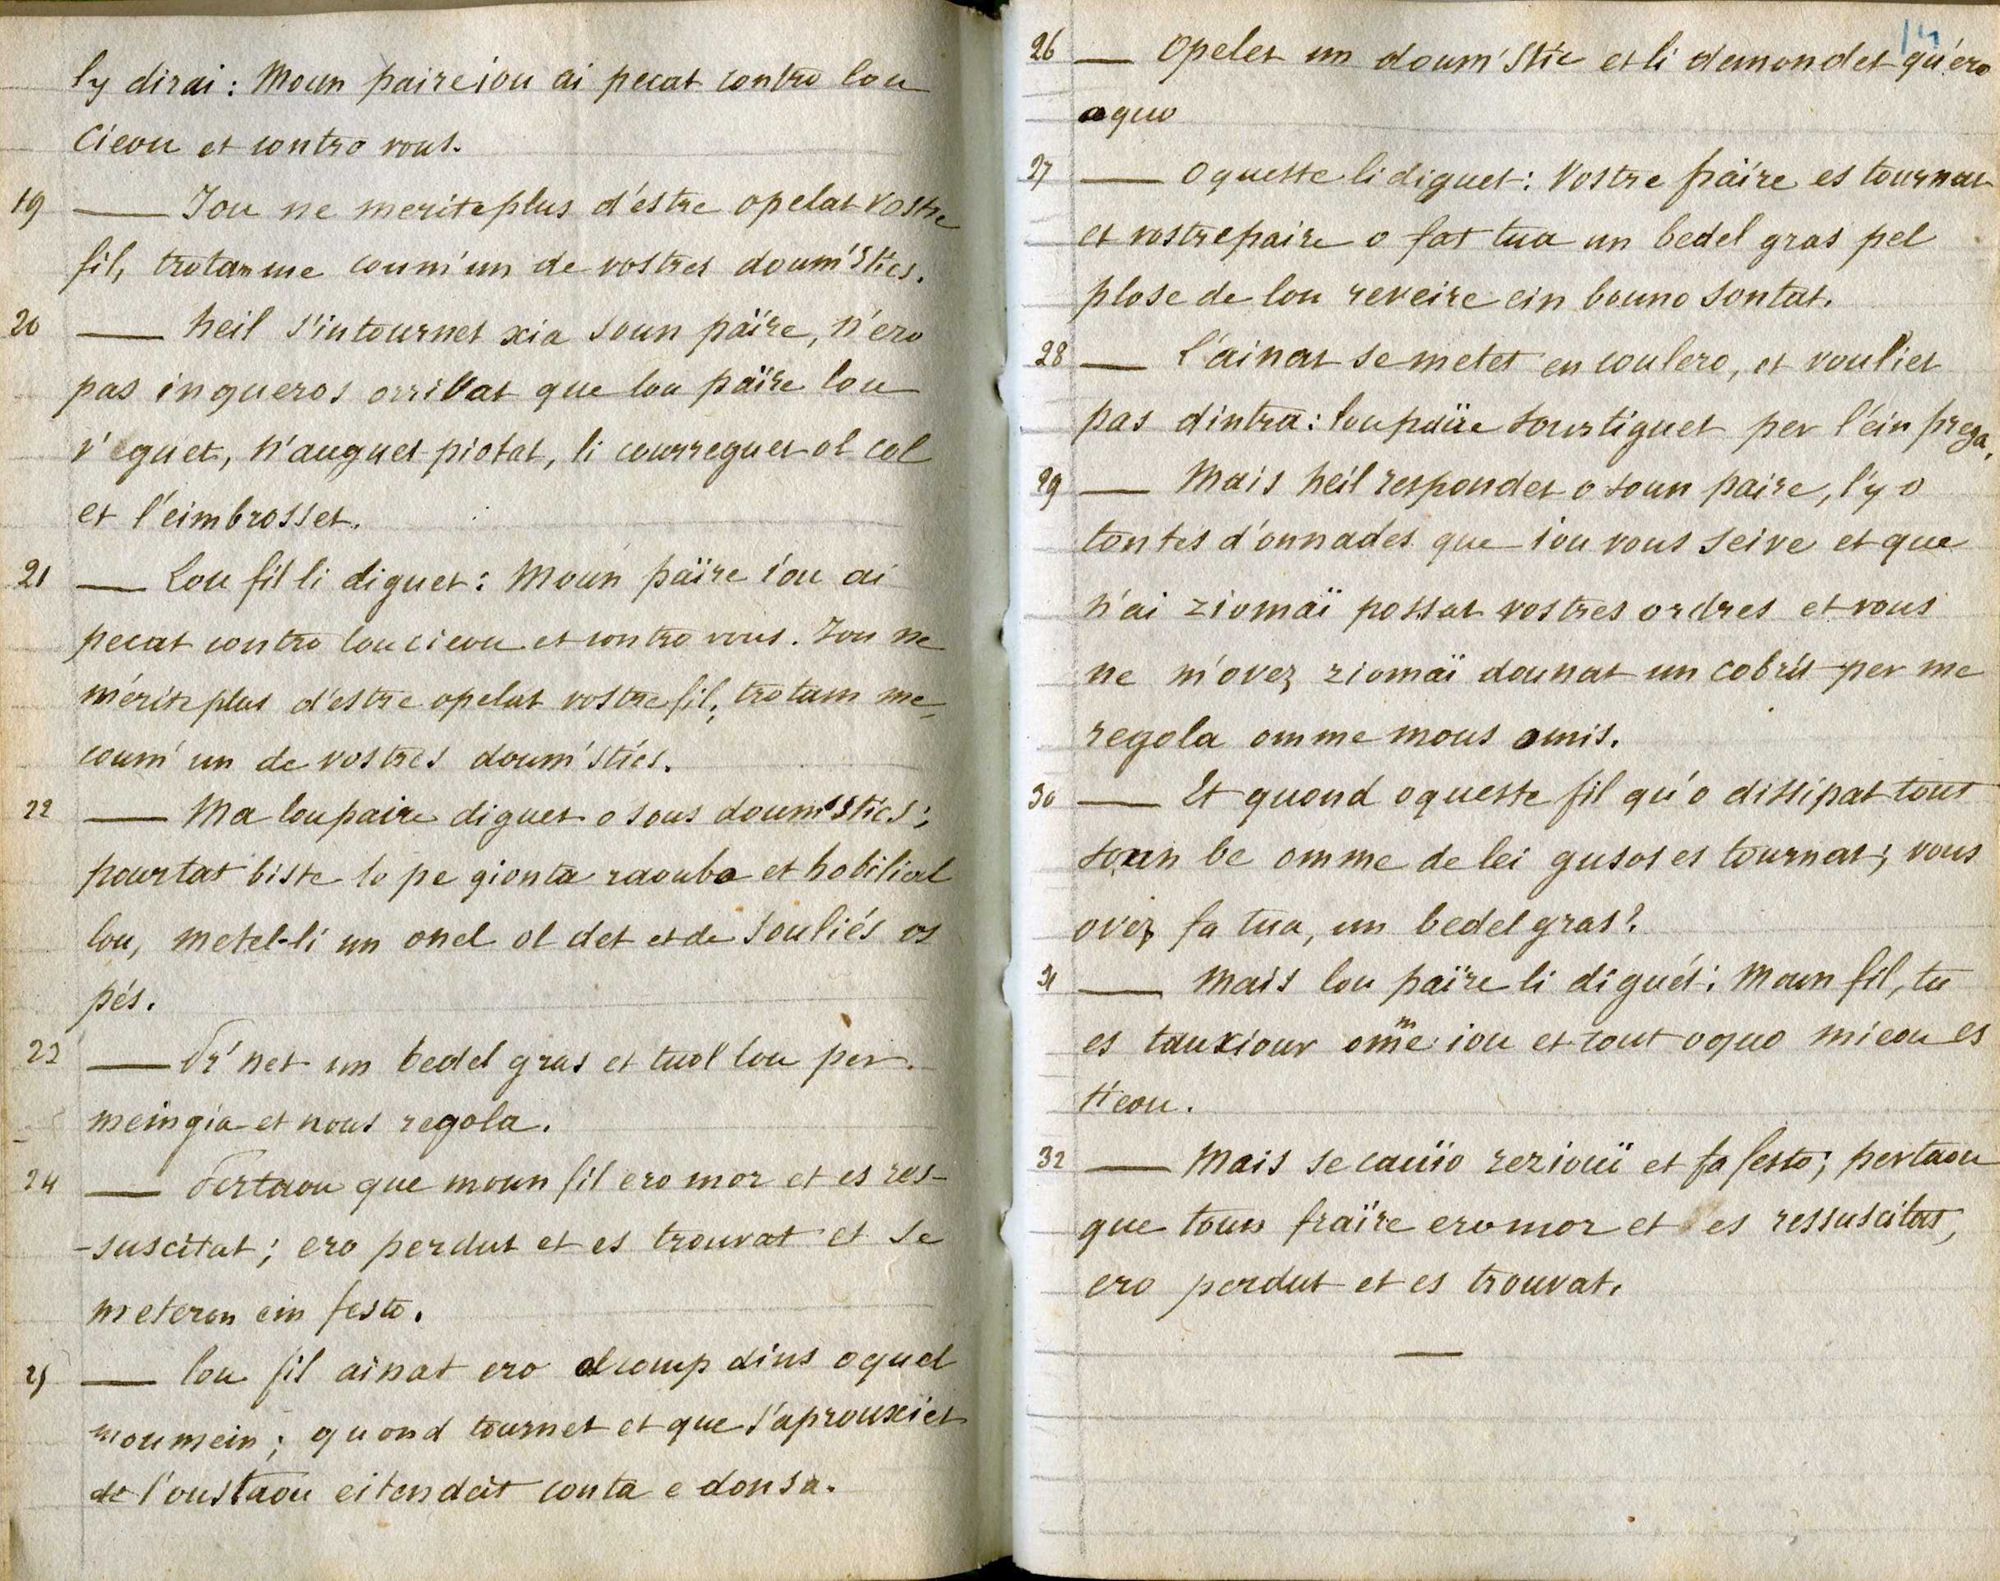 ly dirai: Moun paire iou ai pecat contro lou
Cieou et contro vous.
19 — Iou ne merite plus d'éstre opelat vostre
fil, trotamme coum'un de vostres doum'stics.
20 — heil s'intournet xia soun païre, n'ero
pas inqueros orrivat que lou païre lou
v'eguet, n'auguet piotat, li courreguet ol col
et l'éimbrosset.
21 — Lou fil li diguet: Moun païre iou ai
pecat contro lou cieou et contro vous. Iou ne
mérite plus d'estre opelat vostre fil, trotam me,
coum' un de vostres doum'stics.
22 — Ma lou paire diguet o sous doum'stics;
pourtat biste lo pe gionta raoubo et hobiliat
lou, metet-li un onel ol det et de souliés os
pés.
23 — Pr'net un bedel gras et tuol lou per
meingia et nous regola.
24 — Pertaou que moun fil ero mor et es res-
-suscitat; ero perdut et es trouvat et se
meteron ein festo.
25 — lou fil ainat ero ol comp dins oquel
moumein; quond tournet et que s'aprouxiet
de l'oustaou eitendet conta e donsa.
14
26 — Opelet un doum'stic et li demondet qu'ero
oquo
27 — Oqueste li diguet: Vostre fraïre es tournat
et vostre paire o fat tua un bedel gras pel
plose de lou reveire ein bouno sontat.
28 — L'ainat se metet en coulero, et vouliet
pas dintra: lou païre sourtiguet per l'éin prega.
29 — Mais heil respondet o soun paire, l'y o
tontes d'onnades que iou vous seive et que
n'ai ziomaï possat vostres ordres et vous
ne m'ovez ziomaï dounat un cobrit per me
regola omme mous omis.
30 — Et quond oqueste fil qu'o dissipat tout
soun be omme de lei gusos es tournat; vous
ovez fa tua, un bedel gras?
31 — Mais lou païre li diguét: Moun fil, tu
es tauxiour omme iou et tout oquo mieou es
tieou.
32 — Mais se caüio rezioüi et fa festo; pertaou
que toun fraïre ero mor et es ressuscitat,
ero perdut et es trouvat.